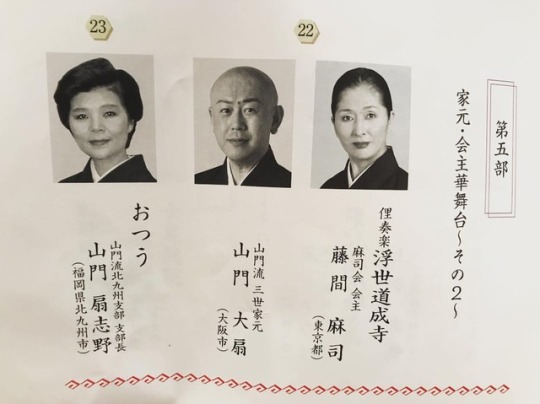 第五部
家元・会主華舞台〜その2〜
22
俚奏楽 浮世道成寺
麻司会 会主
藤間 麻司
(東京都)
山門流 三世家元
山門 大扇
(大阪市)
23
おつう
山門流北九州支部 支部長
山門 扇志野
(福岡県北九州市)